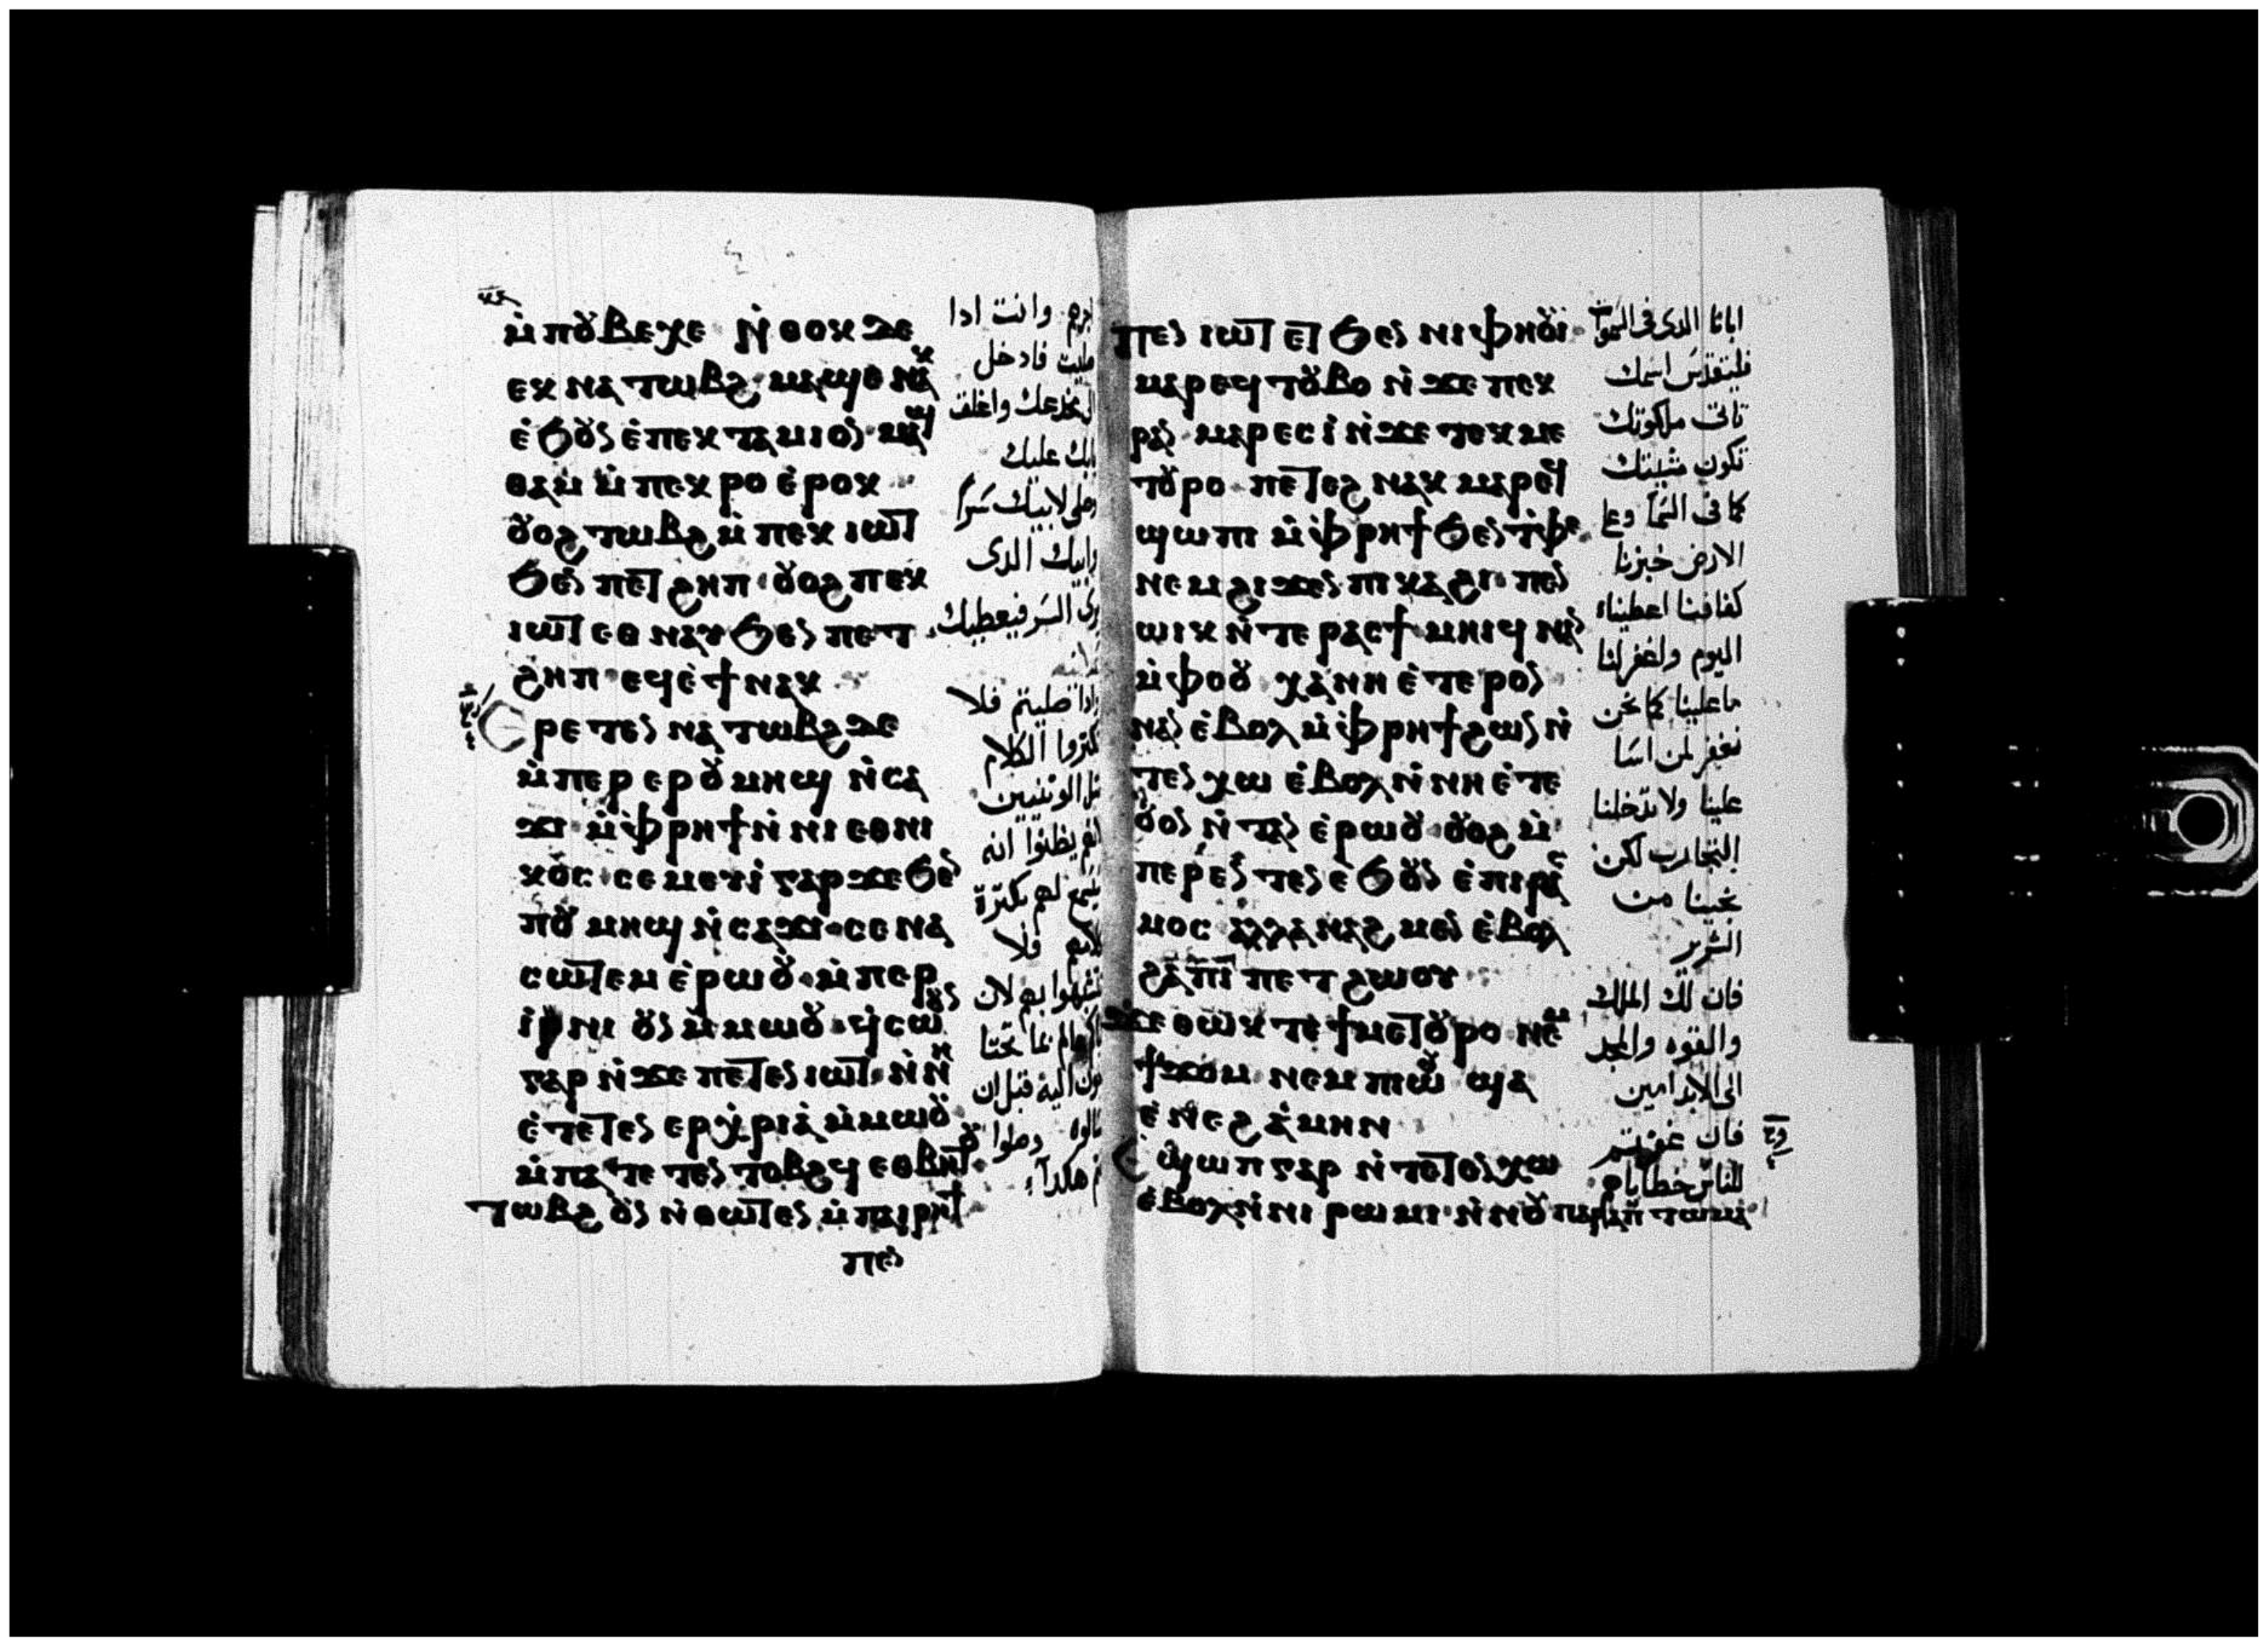 ⲙ̀ⲡⲟⲩⲃⲉⲭⲉ ⲛ̀ⲑⲟⲕ ⲇⲉ
ⲉⲕ ⲛⲁ ⲧⲱⲃϩ ⲙⲁϣⲉ ⲛⲁⲕ
ⲉ̀ϧⲟⲩⲛ ⲉ̀ⲡⲉⲕ ⲧⲁⲙⲓⲟⲛ ⲙⲁϣ
ⲑⲁⲙ ⲙ̀ⲡⲉⲕ ⲣⲟ ⲉ̀ⲣⲟⲕ
ⲟⲩⲟϩ ⲧⲱⲃϩ ⲙ̀ⲡⲉⲕ ⲓⲱⲧ
ϧⲉⲛ ⲡⲉⲧ ϩⲏⲡ ⲟⲩⲟϩ ⲡⲉⲕ
ⲓⲱⲧ ⲉⲑ ⲛⲁⲩ ϧⲉⲛ ⲡⲉⲧ
ϩⲏⲡ ⲉϥⲉ̀ϯ ⲛⲁⲕ
ⲉⲣⲉⲧⲉⲛ ⲛⲁ ⲧⲱⲃϩ ⲇⲉ
ⲙ̀ⲡⲉⲣ ⲉⲣ ⲟⲩⲙⲏϣ ⲛ̀ⲥⲁ
ϫⲓ ⲙ̀ⲫⲣⲏϯ ⲛ̀ⲛⲓ ⲉⲑⲛⲓ
ⲕⲟⲥ ⲥⲉ ⲙⲉⲩⲓ̀ ⲅⲁⲣ ϫⲉ ϧⲉⲛ
ⲡⲟⲩ ⲙⲏϣ ⲛ̀ⲥⲁϫⲓ ⲥⲉ ⲛⲁ
ⲥⲱⲧⲉⲙ ⲉ̀ⲣⲱⲟⲩ ⲙ̀ⲡⲉⲣ
ⲓ̀ⲛⲓ ⲟⲩⲛ ⲙ̀ⲙⲱⲟⲩ ϥ̀ⲥⲱⲟⲩⲛ
ⲅⲁⲣ ⲛ̀ϫⲉ ⲡⲉⲧⲉⲛ ⲓⲱⲧ ⲛ̀ⲛⲏ
ⲉ̀ⲧⲉⲧⲉⲛ ⲉⲣⲭ̀ⲣⲓⲁ ⲙ̀ⲙⲱⲟⲩ
ⲙ̀ⲡⲁⲧⲉ ⲧⲉⲛ ⲧⲟⲃϩϥ ⲉⲑⲃⲏⲧⲟⲩ
ⲧⲱⲃϩ ⲟⲩⲛ ⲛ̀ⲑⲱⲧⲉⲛ ⲙ̀ⲡⲁⲓⲣⲏϯ
ⲡⲉⲛ
اجرهم وانت اذا
صليت فادخل
الى مخدعك واغلق
بابك عليك
وصلى لابيك سرا
وابيك الدى
يرى السر فيعطيك
وادا صليتم فلا
تكتروا الكلام
مثل الوتنيين
لانهم يظنوا انه
يسمع لهم بكترة
كلامهم فلا
تتشبهوا بهم لان
اباكم عالم بما تحتا
جون اليه قبل ان
تسالوه وصلوا
انتم هكدا
ⲡⲉⲛ ⲓⲱⲧ ⲉⲧ ϧⲉⲛ ⲛⲓ ⲫⲏⲟⲩⲓ
ⲙⲁⲣⲉϥ ⲧⲟⲩⲃⲟ ⲛ̀ϫⲉ ⲡⲉⲕ
ⲣⲁⲛ ⲙⲁⲣⲉⲥⲓ̀ ⲛ̀ϫⲉ ⲧⲉⲕ ⲙⲉ
ⲧⲟⲩⲣⲟ ⲡⲉⲧⲉϩ ⲛⲁⲕ ⲙⲁⲣⲉϥ
ϣⲱⲡⲓ ⲙ̀ⲫⲣⲏϯ ϧⲉⲛ ⲧ̀ⲫⲉ
ⲛⲉⲙ ϩⲓϫⲉⲛ ⲡⲓⲕⲁϩⲓ ⲡⲉⲛ
ⲱⲓⲕ ⲛ̀ⲧⲉ ⲣⲁⲥϯ ⲙⲏⲓϥ ⲛⲁⲛ
ⲙ̀ⲫⲟⲟⲩ ⲭⲁ ⲛⲏ ⲉ̀ⲧⲉⲣⲟⲛ
ⲛⲁⲛ ⲉ̀ⲃⲟⲗ ⲙ̀ⲫⲣⲏϯ ϩⲱⲛ ⲛ̀
ⲧⲉⲛ ⲭⲱ ⲉ̀ⲃⲟⲗ ⲛ̀ⲛⲏ ⲉ̀ⲧⲉ
ⲟⲩⲟⲛ ⲛ̀ⲧⲁⲛ ⲉ̀ⲣⲱⲟⲩ ⲟⲩⲟϩ ⲙ̀
ⲡⲉⲣⲉⲛⲧⲉⲛ ⲉ̀ϧⲟⲩⲛ ⲉ̀ⲡⲓⲣⲁⲥ
ⲙⲟⲥ ⲁⲗⲗⲁ ⲛⲁϩⲙⲉⲛ ⲉ̀ⲃⲟⲗ
ϩⲁ ⲡⲓ ⲡⲉⲧ ϩⲱⲟⲩ
ϫⲉ ⲑⲱⲕ ⲧⲉ ϯⲙⲉⲧⲟⲩⲣⲟ ⲛⲉⲙ
ϯϫⲟⲙ ⲛⲉⲙ ⲡⲓⲱⲟⲩ ϣⲁ
ⲉ̀ⲛⲉϩ ⲁ̀ⲙⲏⲛ
ⲉϣⲱⲡ ⲅⲁⲣ ⲛ̀ⲧⲉⲧⲉⲛ ⲭⲱ
ⲉ̀ⲃⲟⲗ ⲛ̀ⲛⲓ ⲣⲱⲙⲓ ⲛ̀ⲛⲟⲩ ⲡⲁⲣⲁⲡⲧⲱⲙⲁ
ابانا الدى فى السموات
فليتقدس اسمك
تاتى ملكوتك
تكون مشيتك
كما فى السما وعلى
الارض خبزنا
كفافنا اعطينا
اليوم واغفر لنا
ما علينا كما نحن
نغفر لمن اسا
علينا ولا تدخلنا
التجارب لكن
نجينا من
الشرير
فان لك الملك
والقوه والمجد
الى الابد امين
فان غفرتم
للناس خطاياهم